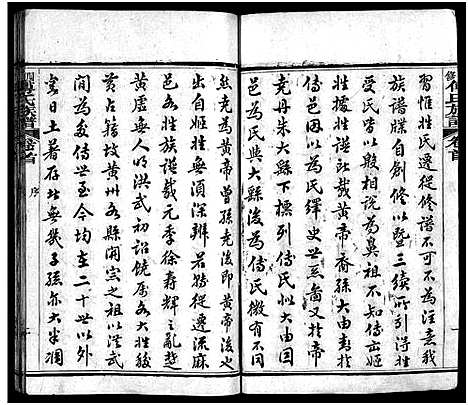 傅氏族譜
卷首
習惟姓氏遷從修譜不可不為注意我
族譜牒自創修以暨三續所引得
受氏皆以為鼻祖不知傅出姬
姓據大姓族譜載黃帝裔孫大由封
傅邑因以為氏繹史世系圖又於帝
堯丹朱大縣下標列傅氏
邑為氏與大縣後為傅氏微有不同
然堯為黃帝曾孫堯後即黃帝後也
皆出自姬姓無須深辨若特從遷流麻
邑各姓族譜載元季徐壽輝之亂楚
黃虛無人明洪武初詔饒屬各大姓驗
黃占籍故黃州各縣開宗之祖以洪武
間為最多傅世至今均在二十世以外
客日土著存此無幾子孫亦大半凋
傅氏族譜
卷首
序